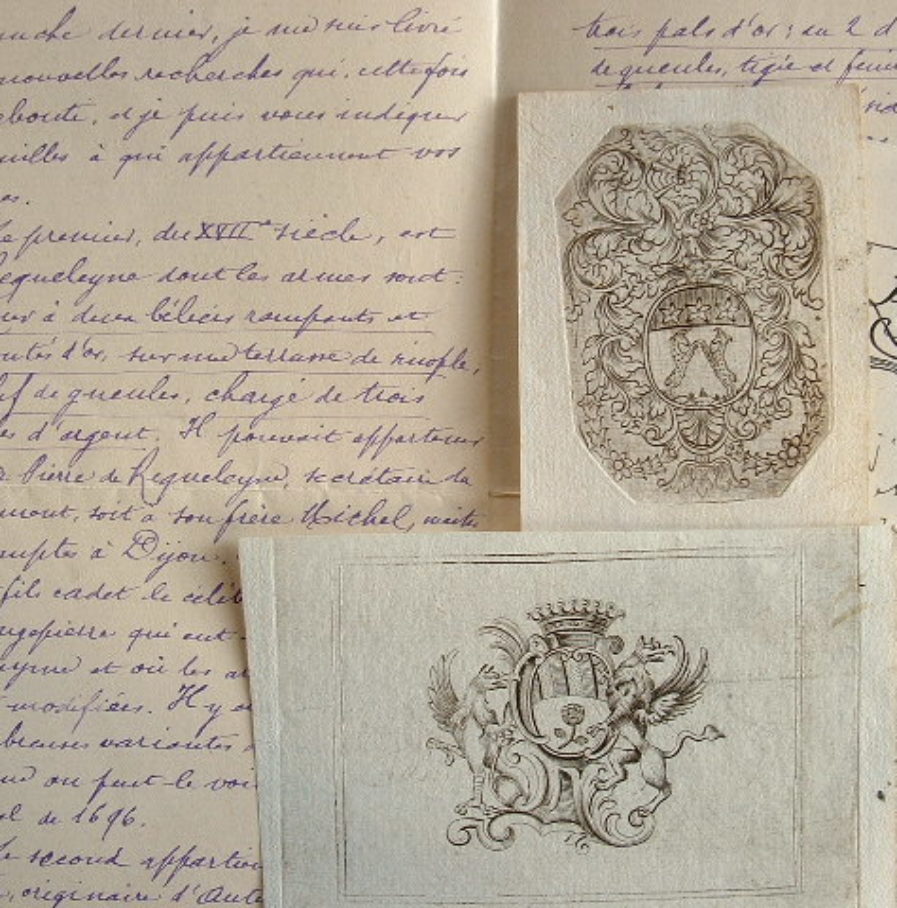 dernier, je me suis livré
nouvelles recherches qui, cette fois
aboute, et je puis vous indiquer
milles à qui appartiennent vos
es.
Le premier, du XVIIe siècle, est
Requeleyne dont les armes sont:
à deux béliers rampants et
ontés d'or, sur une terrasse de sinople,
ef de gueules, chargé de trois
es d'argent. Il pouvait appartenir
à Pierre de Requeleyne, secrétaire du
soit à son frère Michel, maître
omptes à Dijon.
fils cadet le céléb
ngepierre qui eut
eyne et où les ar
modifiées. Il y a
breuses variantes
on peut le voir
al de 1696.
Le second appartien
, originaire d'Aute
trois pals d'or; au 2 d
de gueules, tigée et feuil